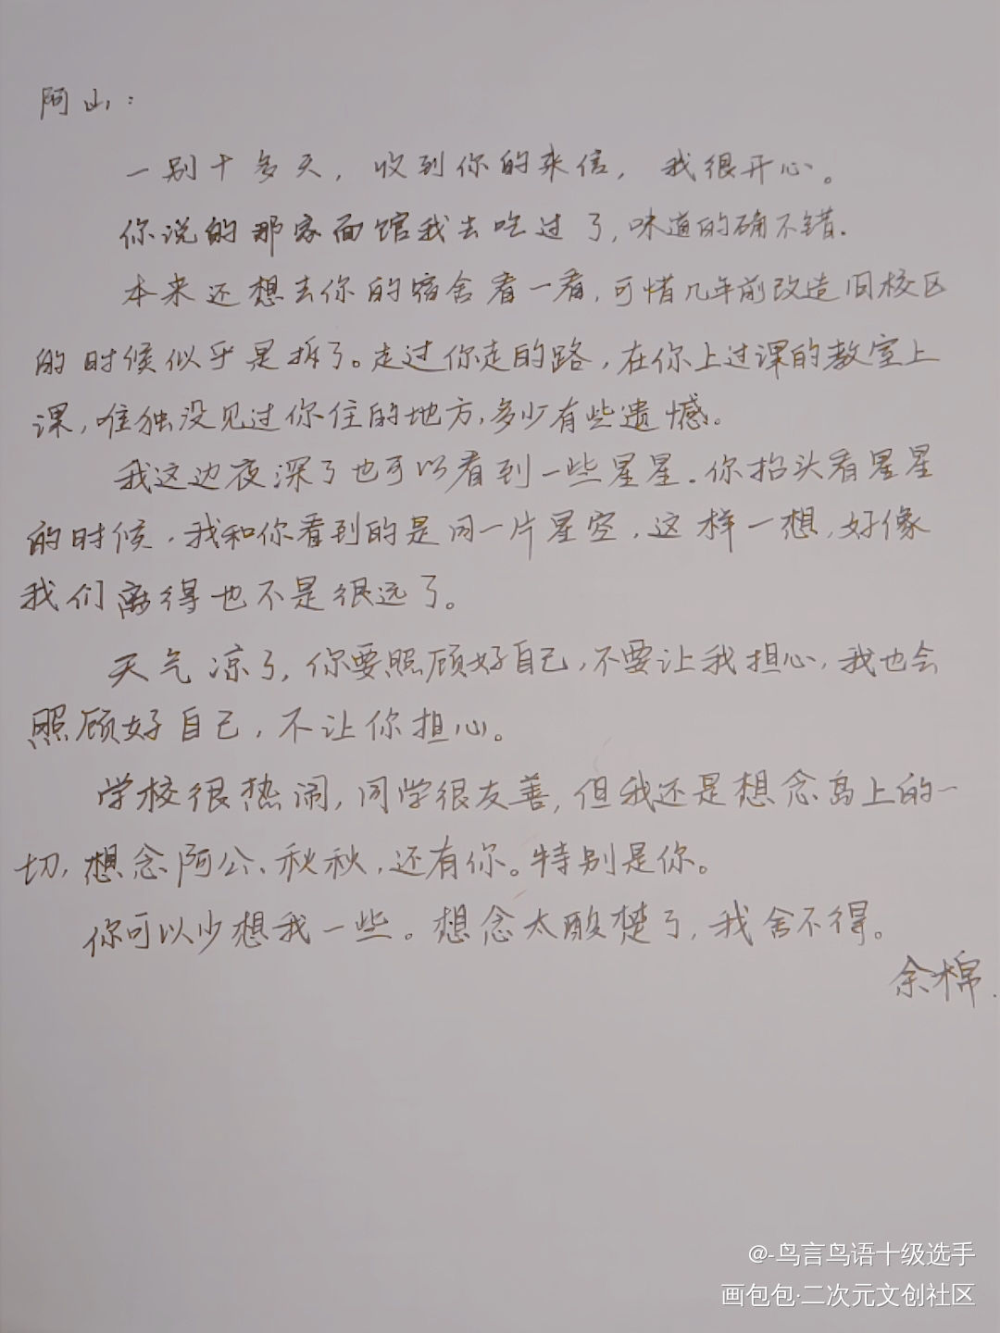 阿山：
一别十多天，收到你的来信，我很开心。
你说的那家面馆我去吃过了，味道的确不错.
本来还想去你的宿舍看一看，可惜几年前改造旧校区
的时候似乎是拆了。走过你走的路，在你上过课的教室上
课，唯独没见过你住的地方，多少有些遗憾。
我这边夜深了也可以看到一些星星.你抬头看星星
的时候，我和你看到的是同一片星空，这样一想，好像
我们离得也不是很远了。
天气凉了，你要照顾好自己，不要让我担心，我也会
照顾好自己，不让你担心。
学校很热闹，同学很友善，但我还是想念岛上的一
切，想念阿公、秋秋，还有你。特别是你。
你可以少想我一些。想念太酸楚了，我舍不得。
余棉.
@-鸟言鸟语十级选手
画包包·二次元文创社区